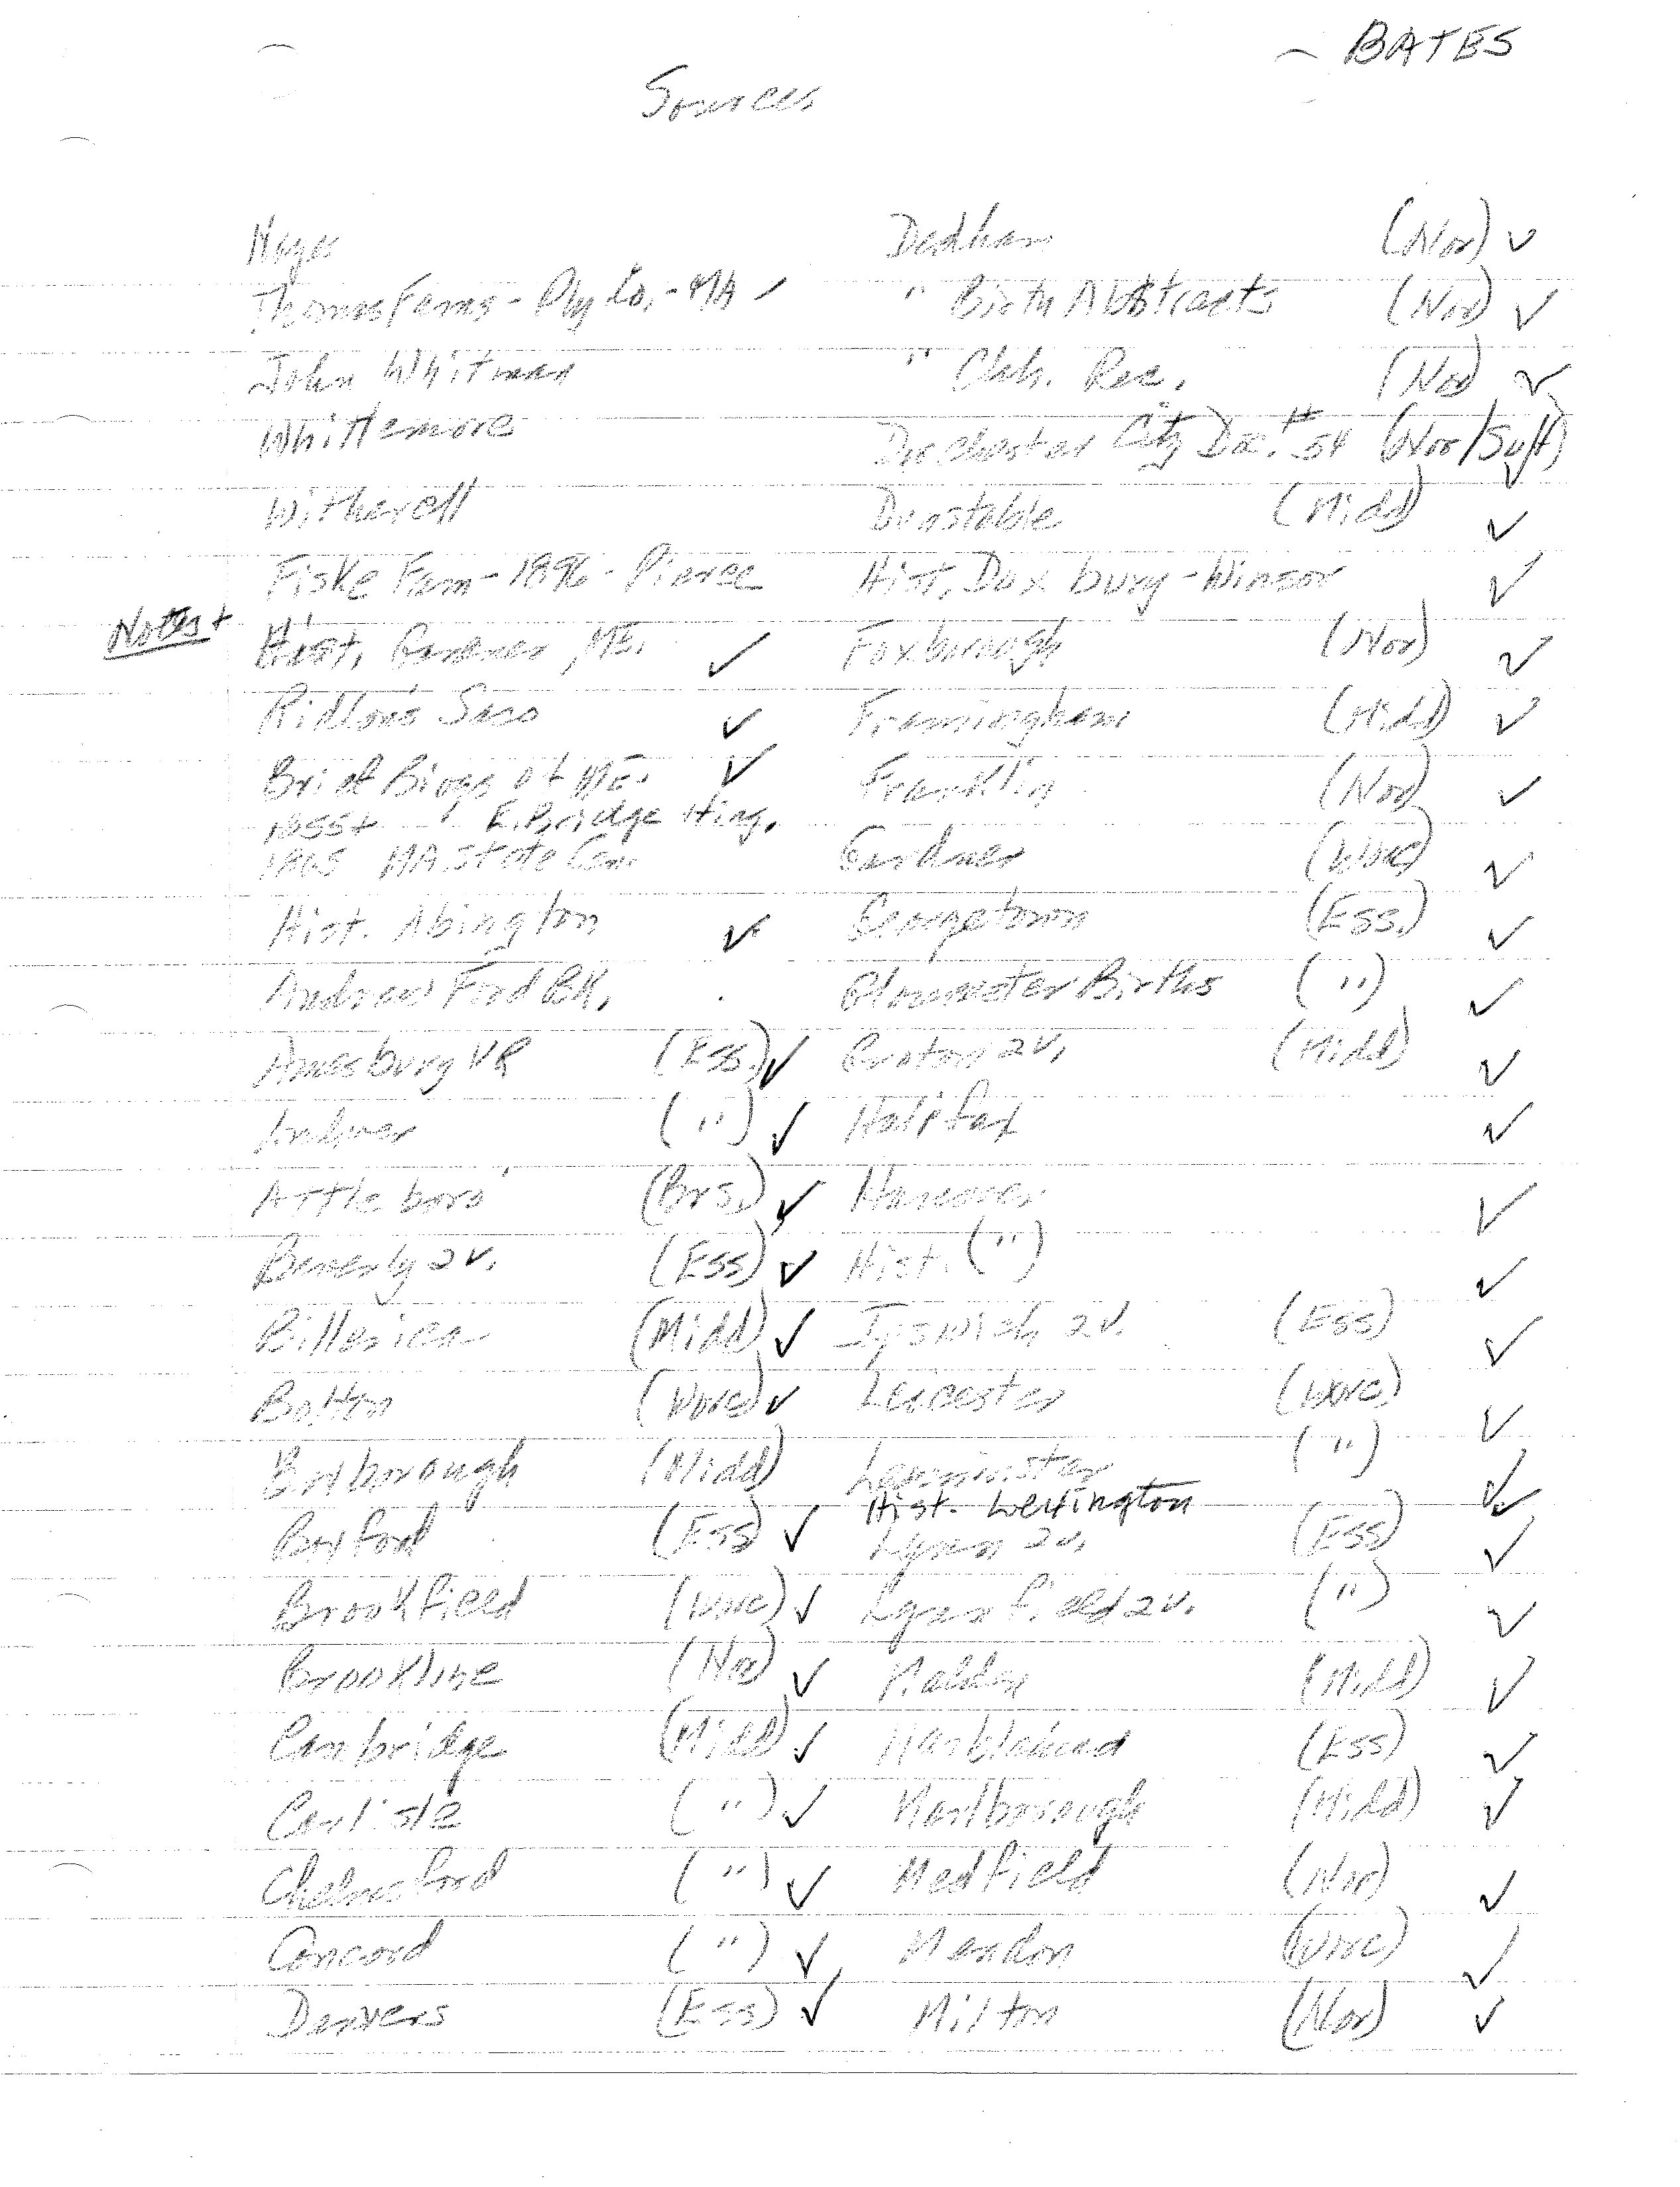 - BATES
Sources
Dedham (Nor) ✓
Thomas Fams - Ply Co, - MA ✓ " Birth Abstracts (Nor) ✓
John Whitman " Chh. Rec. (Nor) ✓
Whittemore Dorchester City Doc. # 54 (Nor/Suff) ✓
Witherell Dunstable (Midd) ✓
Fiske Fam - 1896 - Pierce Hist. Duxbury - Winsor ✓
Notes + Hist. Gardner, ME. ✓ Foxborough (Nor) ✓
Ridlon's Saco ✓ Framingham (Midd) ✓
Brief Biogs of ME. ✓ Franklin (Nor) ✓
E. Bridge Hing.
1865 MA. State Cen. Gardner (Worc) ✓
Hist. Abington ✓ Georgetown (Ess.) ✓
Andrew Ford BK. Gloucester Births (") ✓
Amesbury VR (Ess.) ✓ Groton 2v. (Midd) ✓
Andover (") ✓ Halifax ✓
Attleboro' (Brs.) ✓ Hanover ✓
Beverly 2v. (Ess) ✓ Hist. (") ✓
Billerica (Midd) ✓ Ipswich 2v. (Ess) ✓
Bolton (Worc) ✓ Leicester (Worc) ✓
Boxborough (Midd) Leominster (") ✓
Hist. Lexington ✓
Boxford (Ess) ✓ Lynn 2v. (Ess) ✓
Brookfield (Worc) ✓ Lynnfield 2v. (") ✓
Brookline (Nor) ✓ Malden (Midd) ✓
Cambridge (Midd) ✓ Marblehead (Ess) ✓
Carlisle (") ✓ Marlborough (Midd) ✓
Chelmsford (") ✓ Medfield (Nor) ✓
Concord (") ✓ Mendon (Worc) ✓
Danvers (Ess) ✓ Milton (Nor) ✓